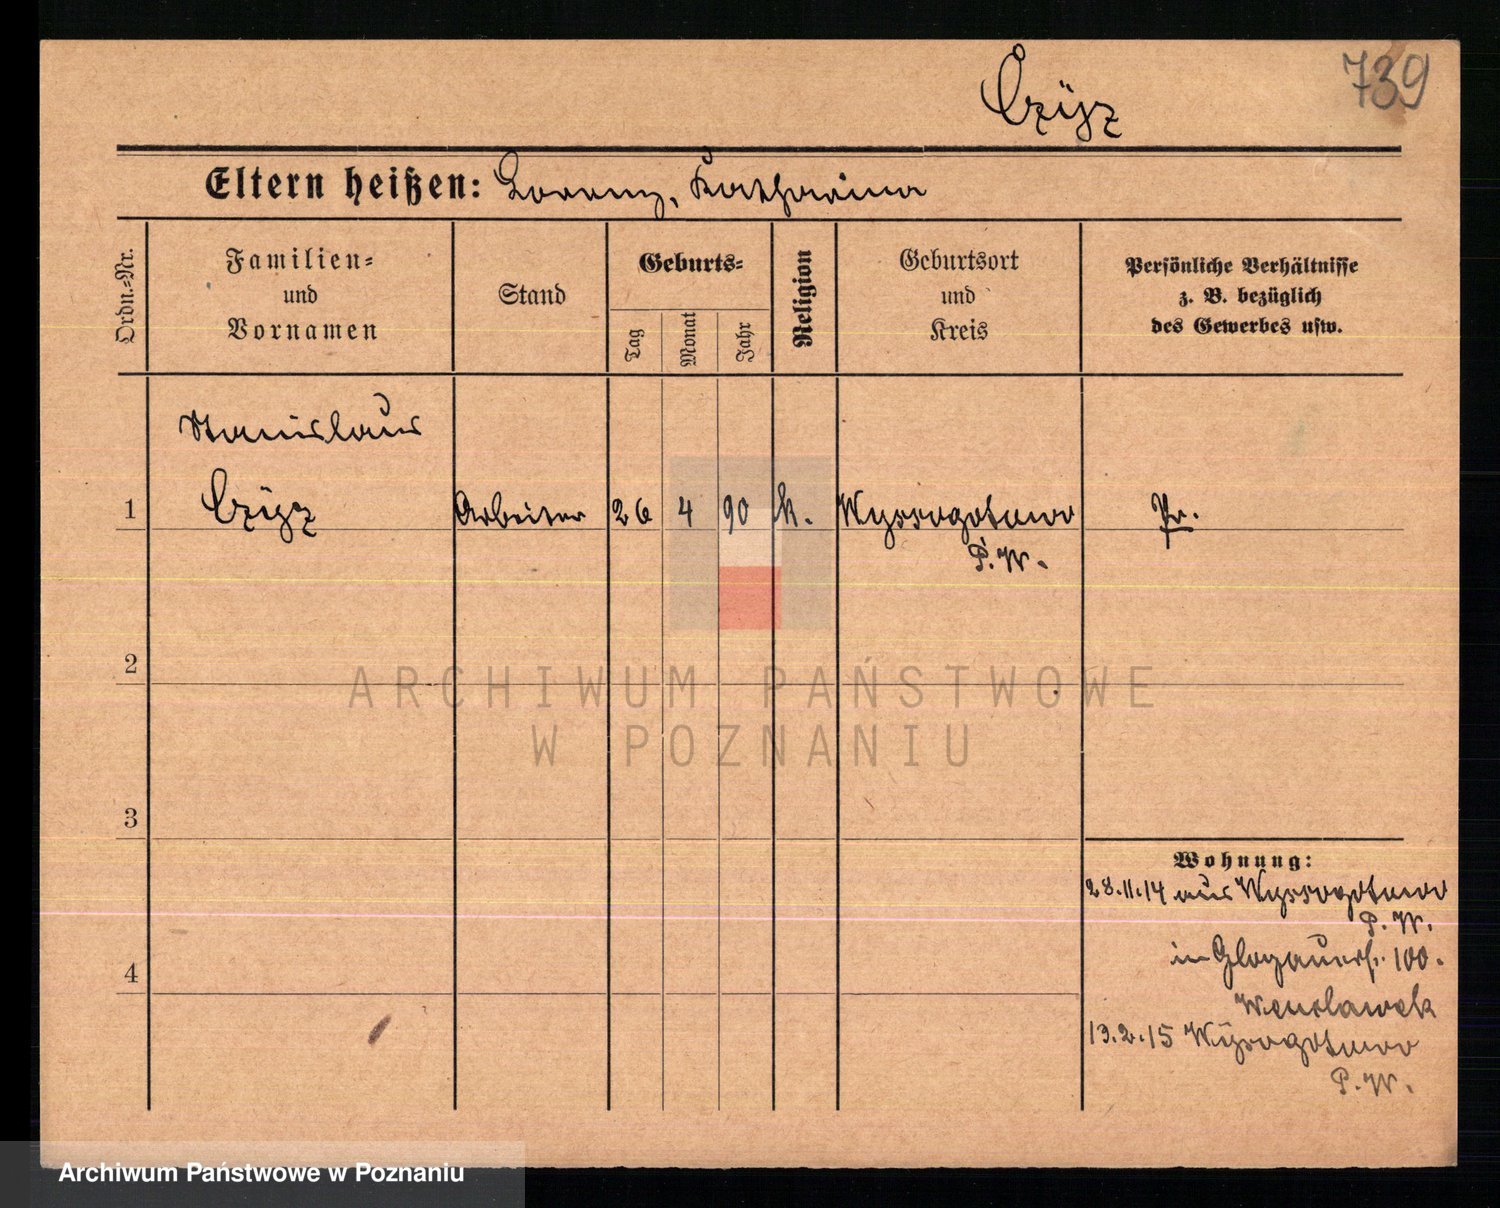 739
Czÿz
Eltern heißen: Lorenz, Katharina
Ordn.-Nr.
Familien-
und
Vornamen
Stand
Geburts-
Tag
Monat
Jahr
Religion
Geburtsort
und
Kreis
Persönliche Verhältnisse
z. B. bezüglich
des Gewerbes usw.
Stanislaus
1 Czÿz Arbeiter 26 4 90 k. Wyssogotowo Pr.
P. W.
2
ARCHIWUM PAŃSTWOWE
W POZNANIU
3
Wohnung:
28.11.14 aus Wyssogotowo
P. W.
in Glogauerst. 100.
4
Wenslawek
13.2.15 Wÿsogotowo
P. W.
Archiwum Państwowe w Poznaniu